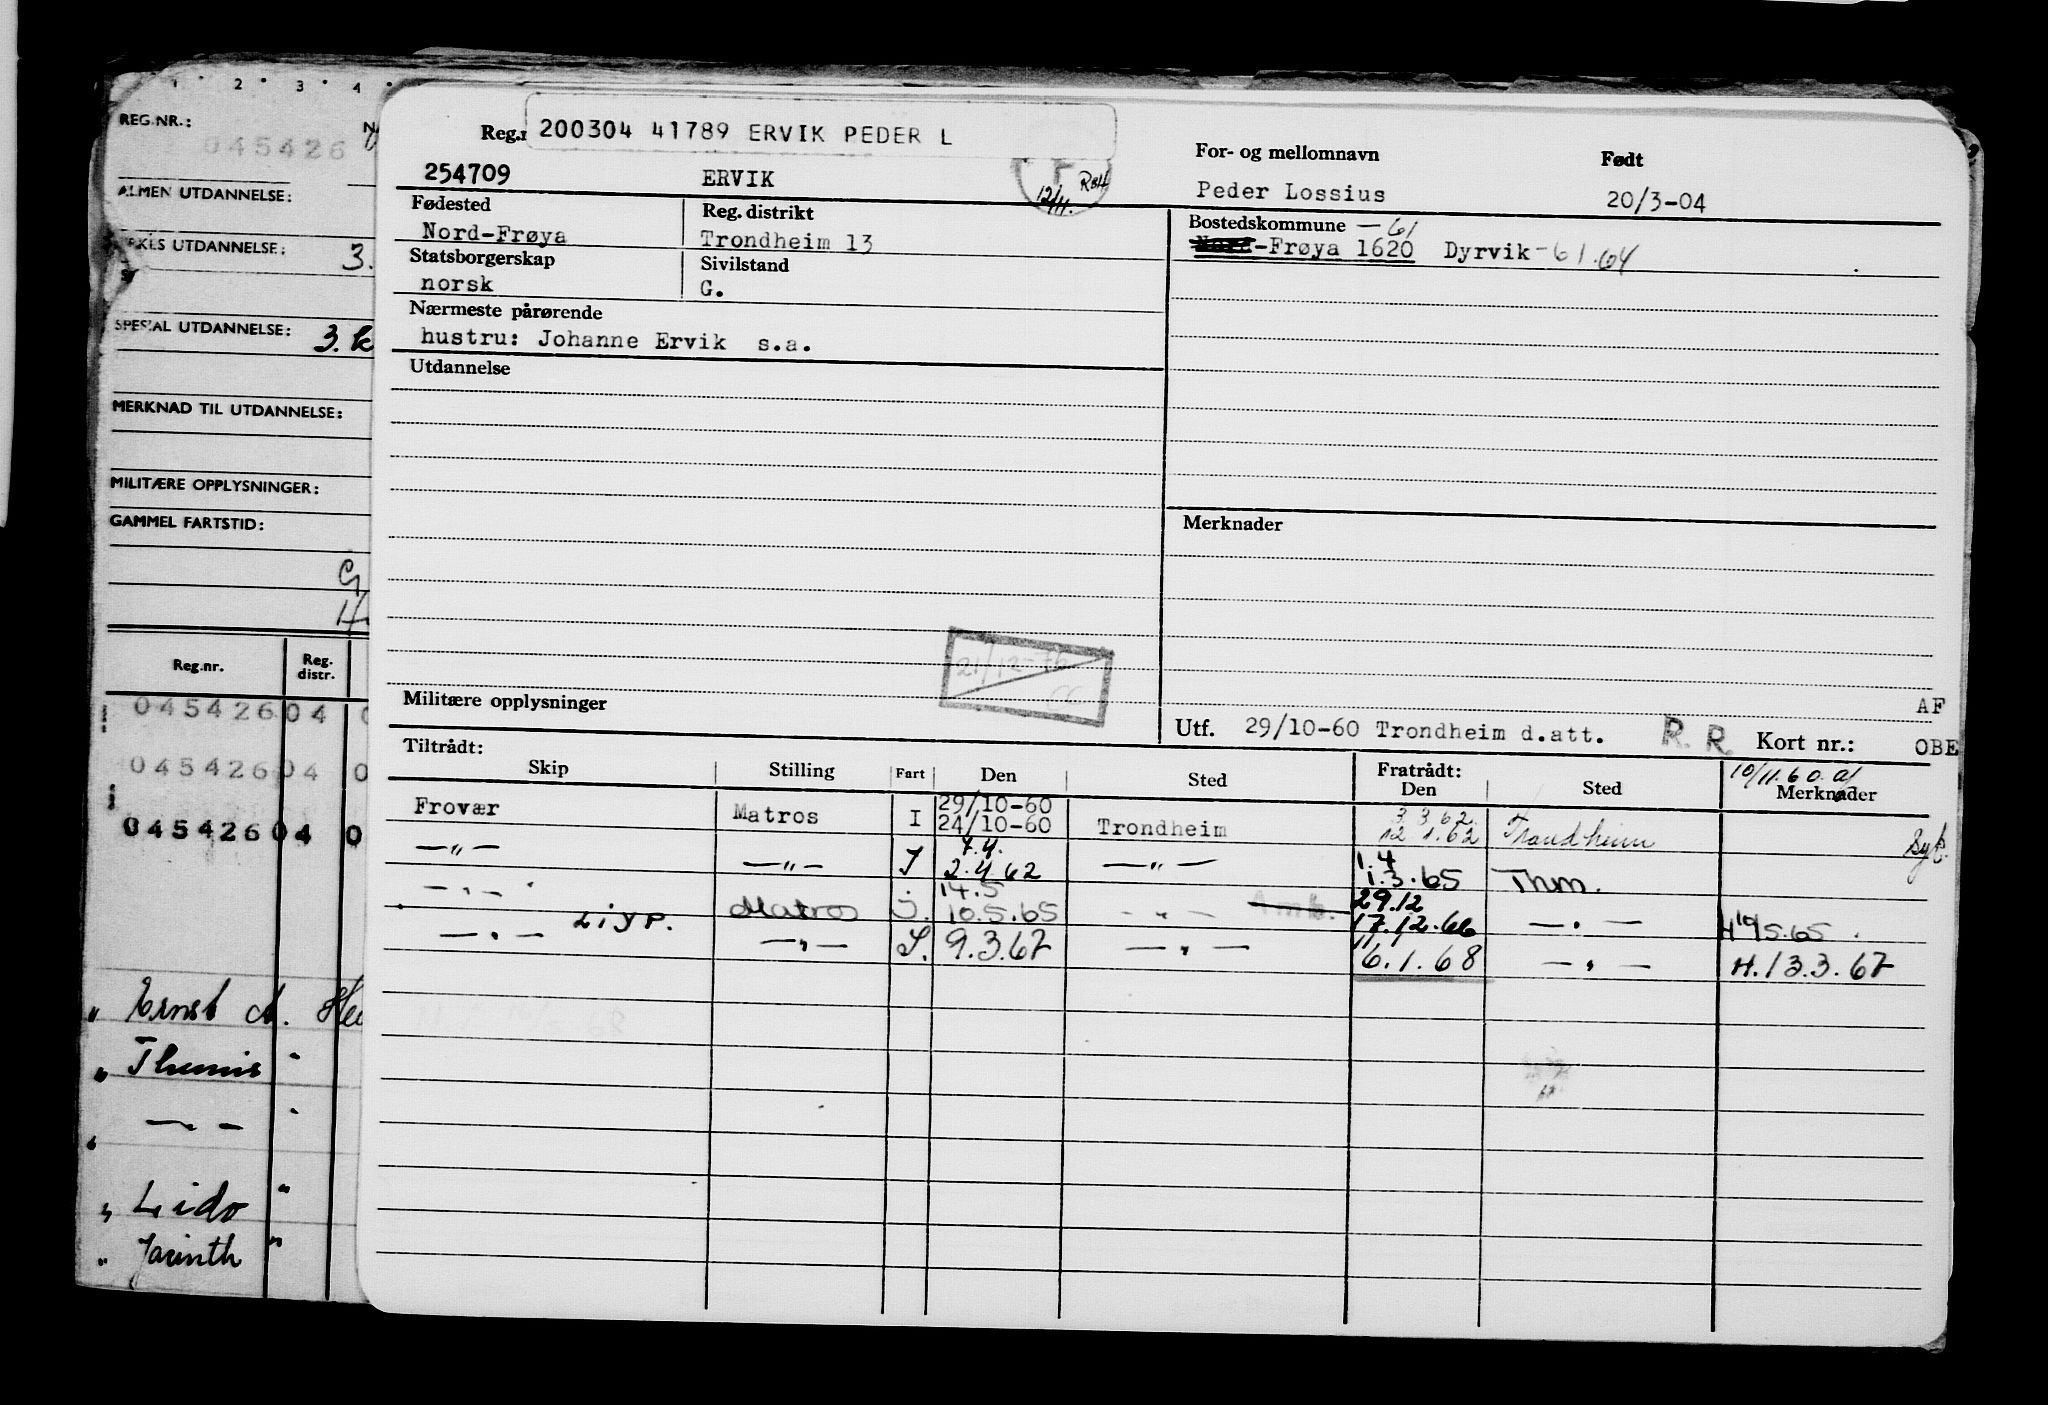 1 2 3 4
REG.NR.:
045426
ALMEN UTDANNELSE:
UTDANNELSE: 3.
SPESIAL UTDANNELSE: 3. k
MERKNAD TIL UTDANNELSE:
MILITÆRE OPPLYSNINGER:
GAMMEL FARTSTID:
G
Reg.nr. Reg. distr.
045426 04 0
045426 04 0
045426 04 0
" Ernst A. He
" Themis "
" — " — "
" Lido "
" Jarinth "
200304 41789 ERVIK PEDER L
Reg.
254709 ERVIK
12/11.
For- og mellomnavn Født
Peder Lossius 20/3-04
Fødested Reg. distrikt
Nord-Frøya Trondheim 13
Statsborgerskap Sivilstand
norsk G.
Nærmeste pårørende
hustru: Johanne Ervik s.a.
Utdannelse
Bostedskommune —61
Nord-Frøya 1620 Dyrvik -61.64
Merknader
21/12-76
Militære opplysninger
AF
Utf. 29/10-60 Trondheim d.att. R. R. Kort nr.: OBE
Tiltrådt: Fratrådt: 10/11.60.
Skip Stilling Fart Den Sted Den Sted Merknader
Frovær Matros I 29/10-60 24/10-60 Trondheim 3.3.62. 12.1.62 Trondheim
— " — — " — I 7.4. 2.4.62 — " — 1.4 1.3.65 Thm.
— " — Matros j. 14.5 10.5.65 — " — Amb. 29.12 17.12.66 — " — 5.65.
— " — — " — I. 9.3.67 — " — 11.1 6.1.68 — " — H.13.3.67